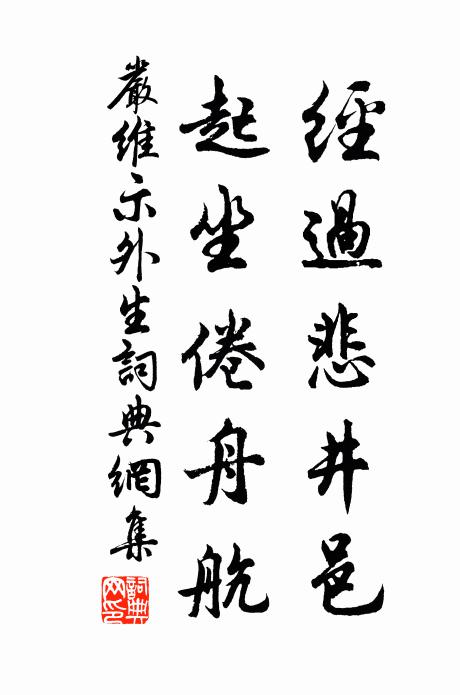 經過悲井邑
起坐倦舟航
嚴維示外生詞典網集
詞典网印